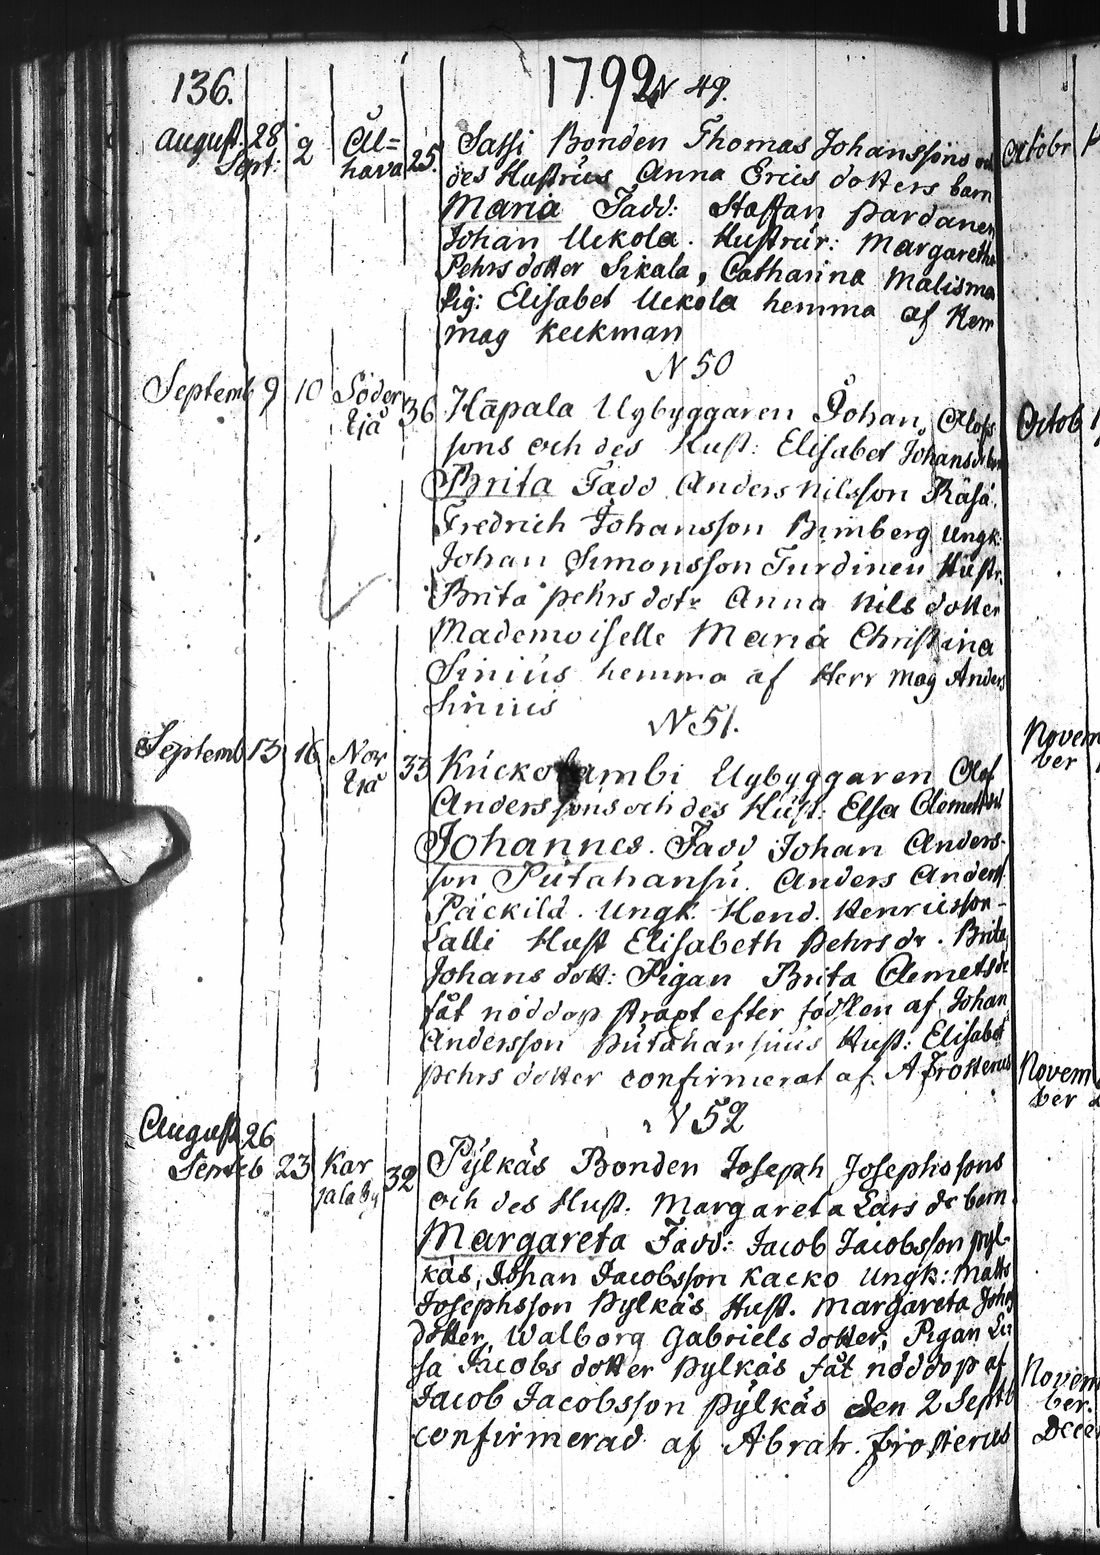 136.
1792
N 49.
August. 28 Sept. 2 Åhl= hava 25.
Sassi Bonden Thomas Johanssons och
des Hustrus Anna Erics dotters barn
Maria Fadd: Staffan Pardanen
Johan Uckola. Hustrur: Margaretha
Pehrs dotter Sikala, Catharina Malisma
Pig: Elisabet Uckola hemma af Herr
mag Keckman
N 50
Septemb 9 10 Söder Ejä 36
Hapala Nybyggaren Johan Olofs
sons och des Hust: Elisabet Johans dr barn
Brita Fadd Anders Nilsson Räsä.
Fredrich Johansson Bimberg Ungk:
Johan Simonsson Turdinen Hustr.
Brita Pehrs dotr Anna Nils dotter
Mademoiselle Maria Christina
Sinius hemma af Herr Mag Anders
Sinius
N 51.
Septemb 13 16 Nor Ejä 33
Kuckolambi Nybyggaren Olof
Anderssons och des Hust: Elsa Clemetsd
Johannes. Fadd Johan Anders-
son Putahansu. Anders Anders
Päckilä. Ungk. Hend. Henricsson-
Lalli Hust Elisabeth Pehrs dr. Brita
Johans dott: Pigan Brita Clemets dr
fåt nöddop strapt efter födslen af Johan
Andersson Putahansuus Hust: Elisabet
Pehrs dotter confirmerat af. A Frosterus
N 52
August 26 Septeb 23 Kar jalaby 32
Pylkäs Bonden Joseph Josephssons
och des Hust. Margareta Lars dr barn
Margareta Fadd: Jacob Jacobsson Pyl-
käs, Johan Jacobsson Kacko Ungk: Matts
Josephsson Pylkäs Hust. Margareta Johs
dotter, Walborg Gabriels dotter, Pigan Li
sa Jacobs dotter Pylkäs fåt nöddop af
Jacob Jacobsson Pylkäs den 2 Septb
confirmerad af Abrah. Frosterus
Octobr
Octob
Novem
ber
Novem
ber
Novem
ber.
Decem